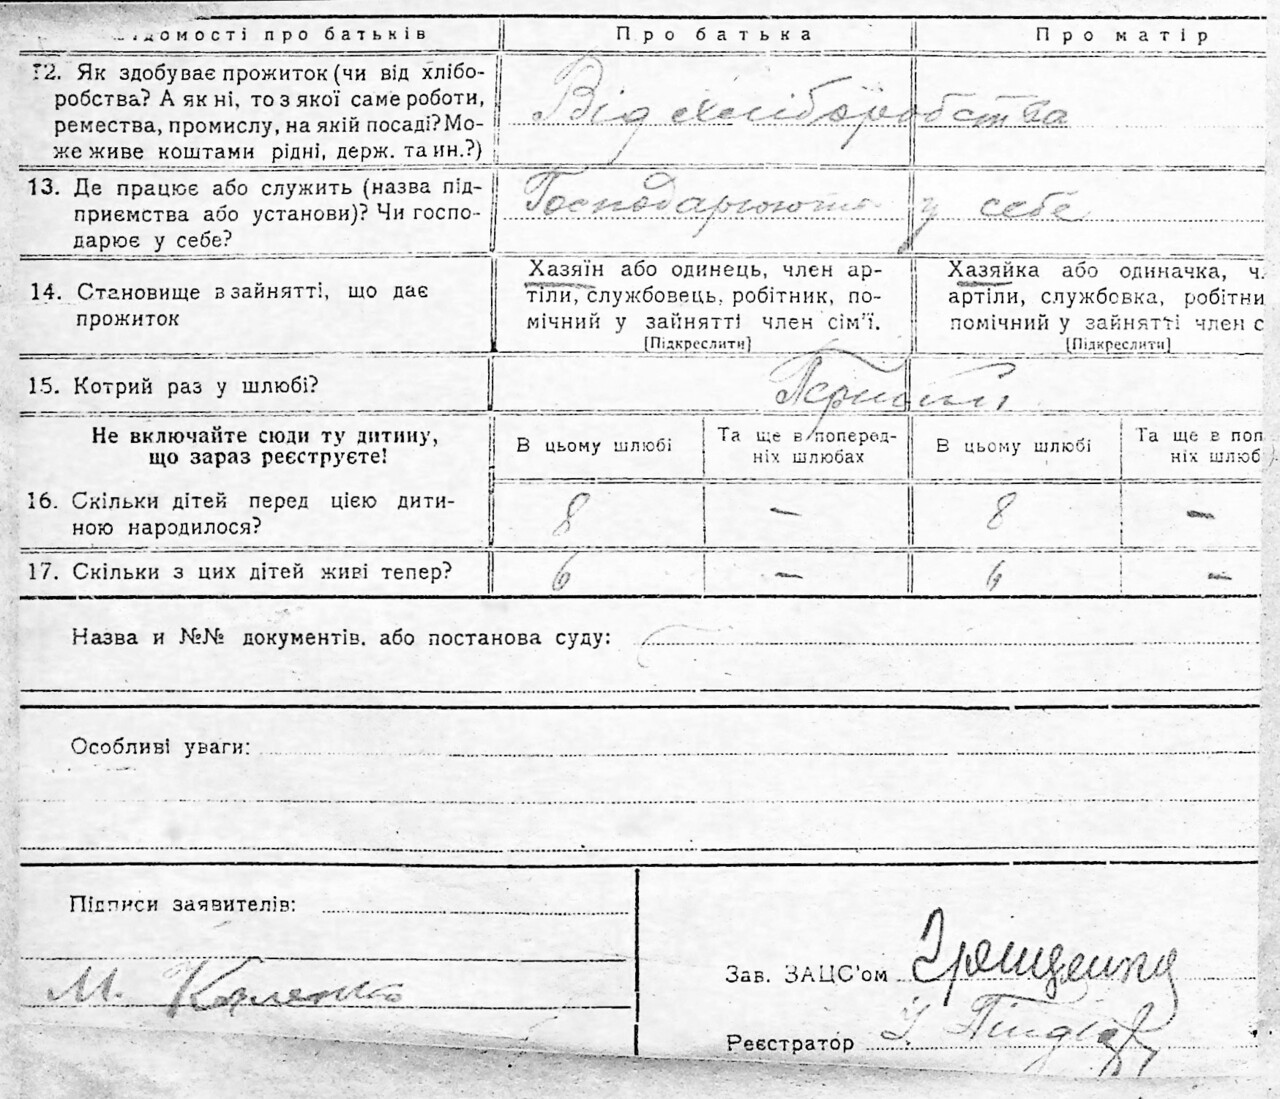 домості про батьків
Про батька
Про матір
12. Як здобуває прожиток (чи від хлібо-
робства? А як ні, то з якої саме роботи,
ремества, промислу, на якій посаді? Мо-
же живе коштами рідні, держ. та ин.?)
Від хліборобства
13. Де працює або служить (назва під-
приємства або установи)? Чи госпо-
дарює у себе?
Господарюють у себе
14. Становище в зайнятті, що дає
прожиток
Хазяїн або одинець, член ар-
тіли, службовець, робітник, по-
мічний у зайнятті член сім'ї.
[Підкреслити]
Хазяйка або одиначка, ч.
артіли, службовка, робітни
помічний у зайнятті член с
[Підкреслити]
15. Котрий раз у шлюбі?
Перший
Не включайте сюди ту дитину,
що зараз реєструєте!
В цьому шлюбі
Та ще в поперед-
ніх шлюбах
В цьому шлюбі
Та ще в поп
ніх шлюб
16. Скільки дітей перед цією дити-
ною народилося?
8 – 8 –
17. Скільки з цих дітей живі тепер?
6 – 6 –
Назва и №№ документів, або постанова суду:
Особливі уваги:
Підписи заявителів:
М. Коленко
Зав. ЗАЦС'ом
Реєстратор